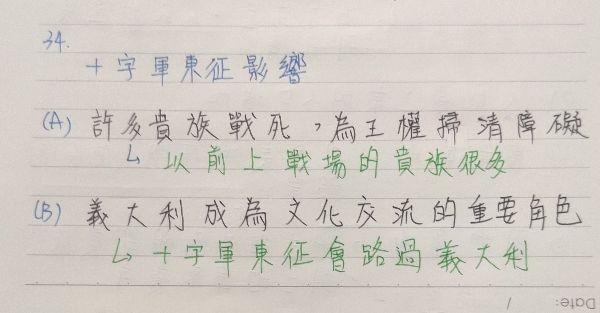 34.
十字軍東征影響
(A) 許多貴族戰死，為王權掃清障礙
↳ 以前上戰場的貴族很多
(B) 義大利成為文化交流的重要角色
↳ 十字軍東征會路過義大利
Date: /